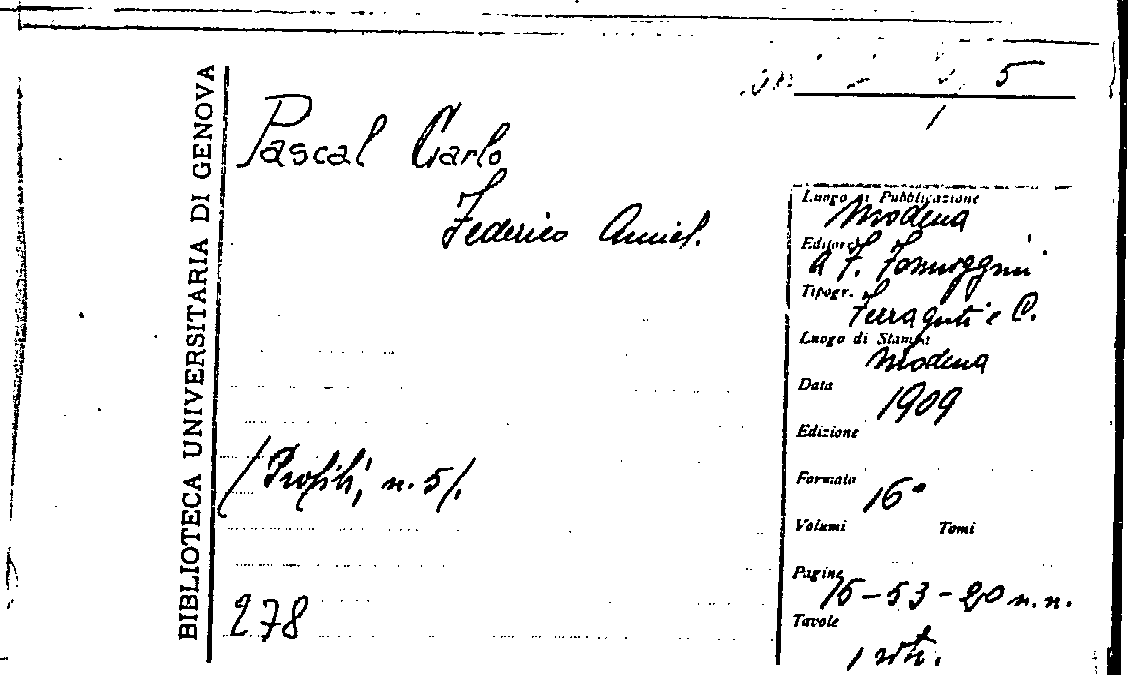 BIBLIOTECA UNIVERSITARIA DI GENOVA
5
Pascal Carlo
Federico Amiel.
/Profili, n. 5/.
278
Luogo di Pubblicazione
Modena
Editore
A. F. Formiggini
Tipogr.
Ferraguti e C.
Luogo di Stampa
Modena
Data
1909
Edizione
Formato
16°
Volumi Tomi
Pagine
15-53-20 n.n.
Tavole
1 ritr.